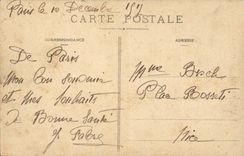 Paris le 10 Decembre
CARTE POSTALE
CORRESPONDANCE
ADRESSE
De Paris
Mon bon souvenir
et mes souhaits
de Bonne Santé
J. Fabre
Mme Broch
Place Rossetti
Nice